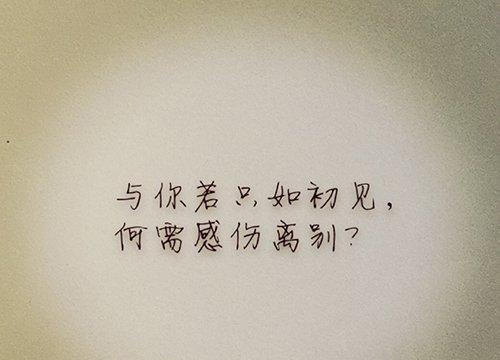 与你若只如初见,
何需感伤离别?